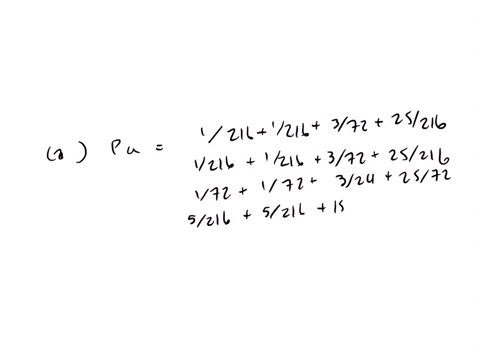 1/216 + 1/216 + 3/72 + 25/216
(a) Pu =
1/216 + 1/216 + 3/72 + 25/216
1/72 + 1/72 + 3/24 + 25/72
5/216 + 5/216 + 15